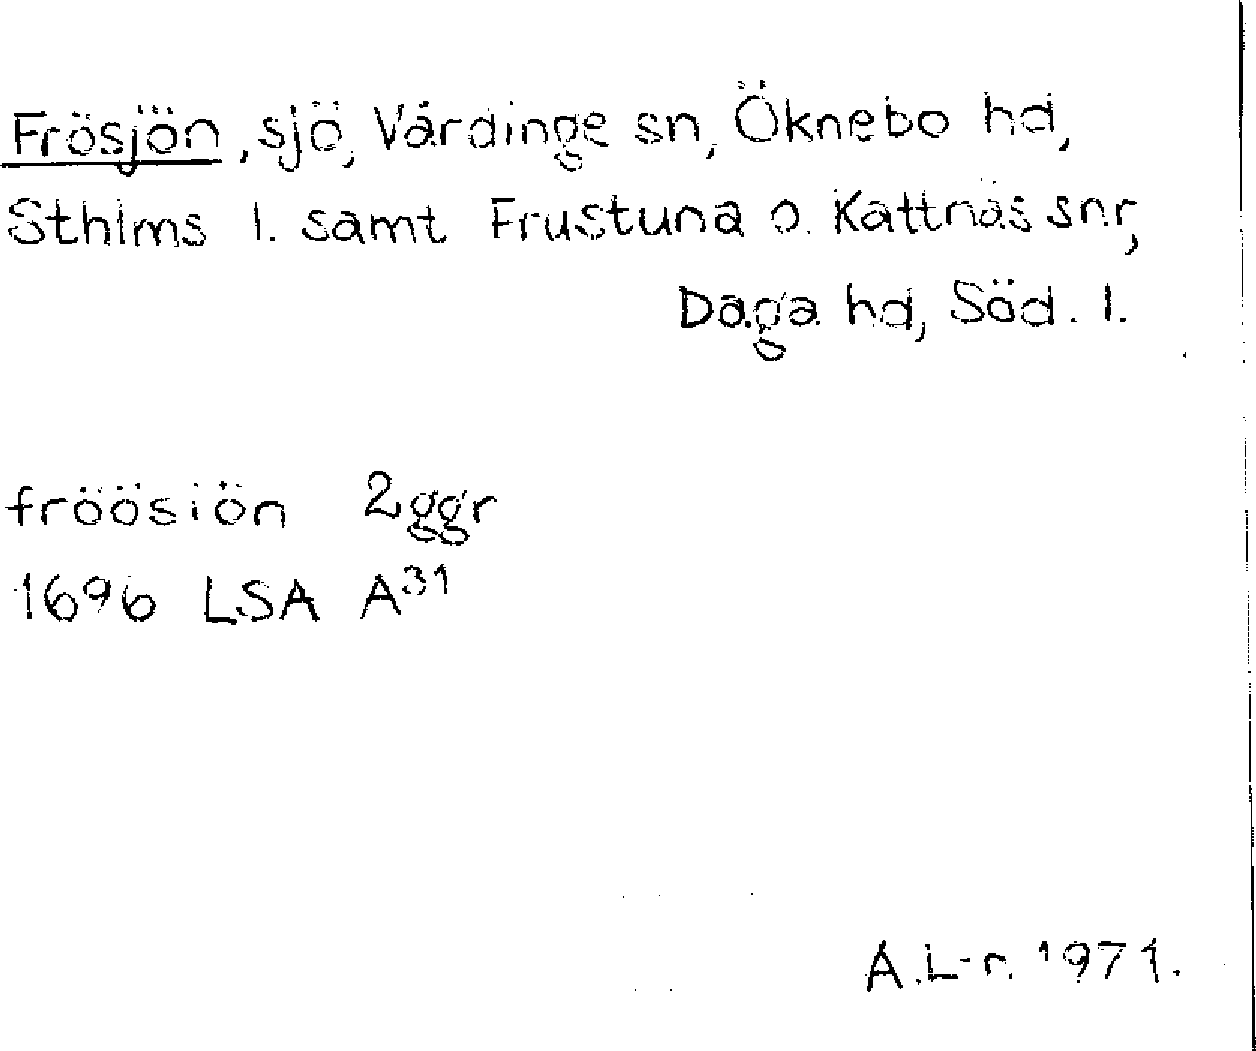 Frösjön, sjö, Vårdinge sn, Öknebo hd,
Sthlms l. samt Frustuna o. Kattnäs snr,
Daga hd, Söd. l.
fröösiön 2ggr
1696 LSA A31
A.L-r. 1971.